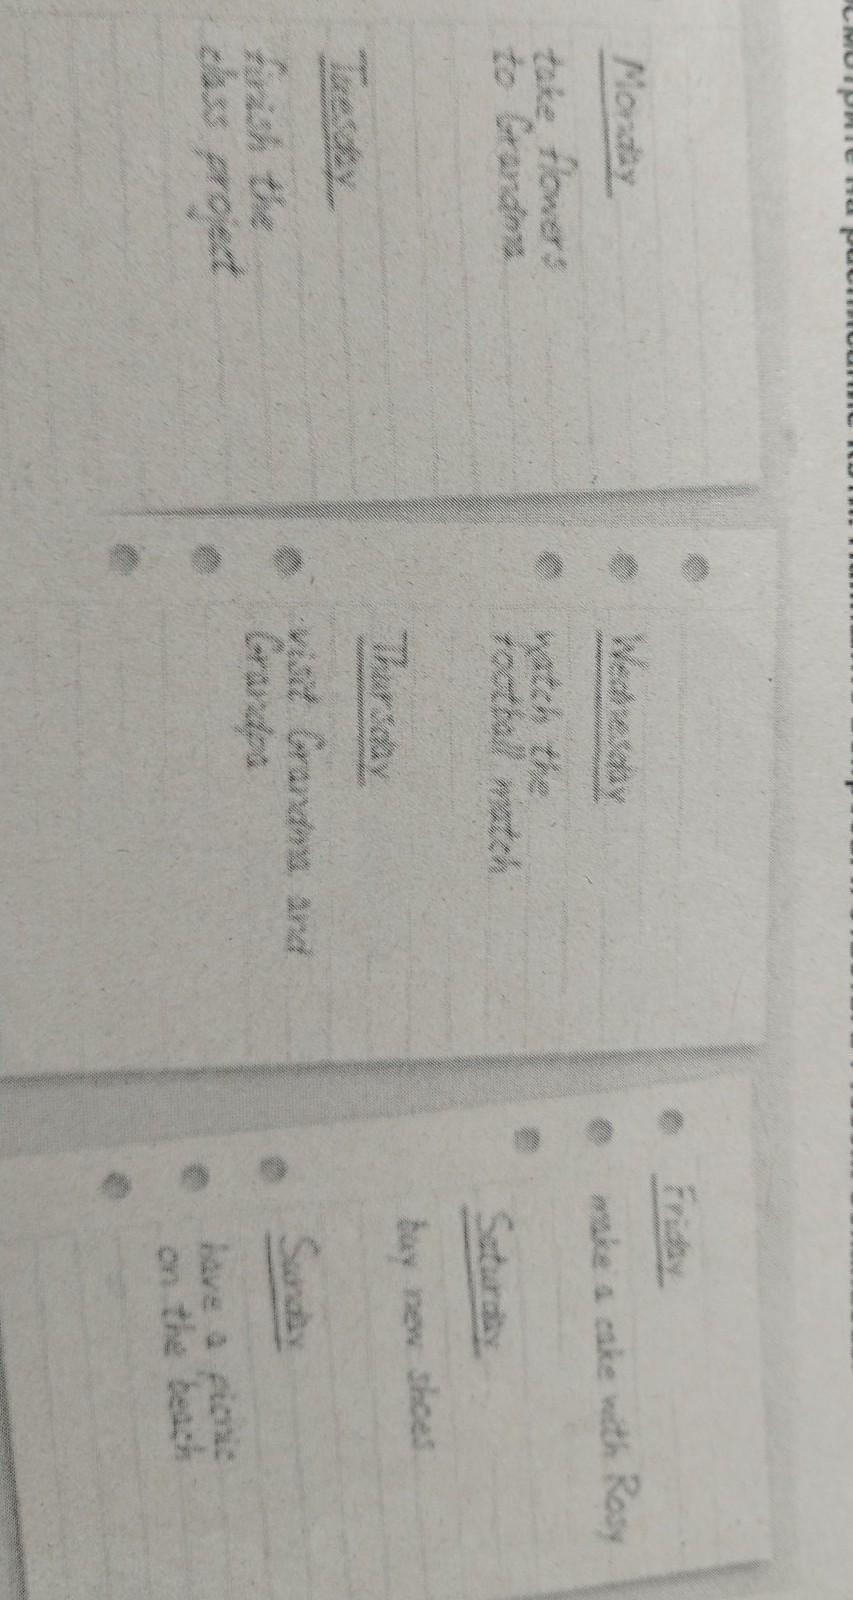 Monday
take flowers
to Grandma
Tuesday
finish the
class project
Wednesday
watch the
football match
Thursday
visit Grandma and
Grandpa
Friday
make a cake with Rosy
Saturday
buy new shoes
Sunday
have a picnic
on the beach